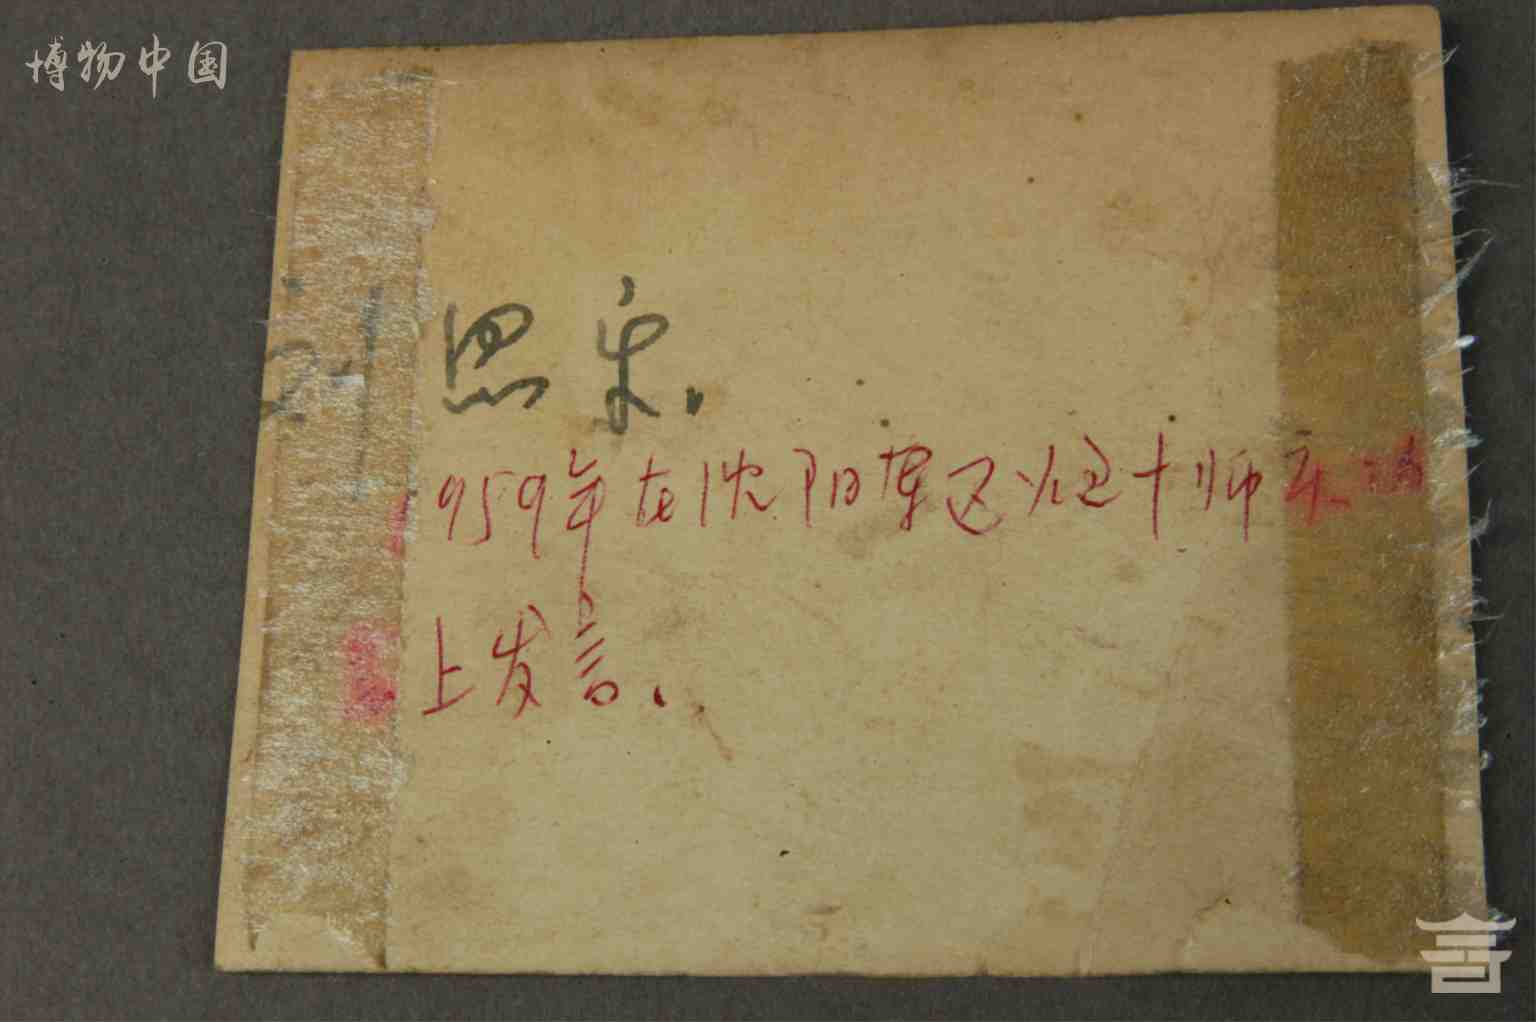 博物中国
宋.
1959年在沈阳军区炮十师庆
上发言.